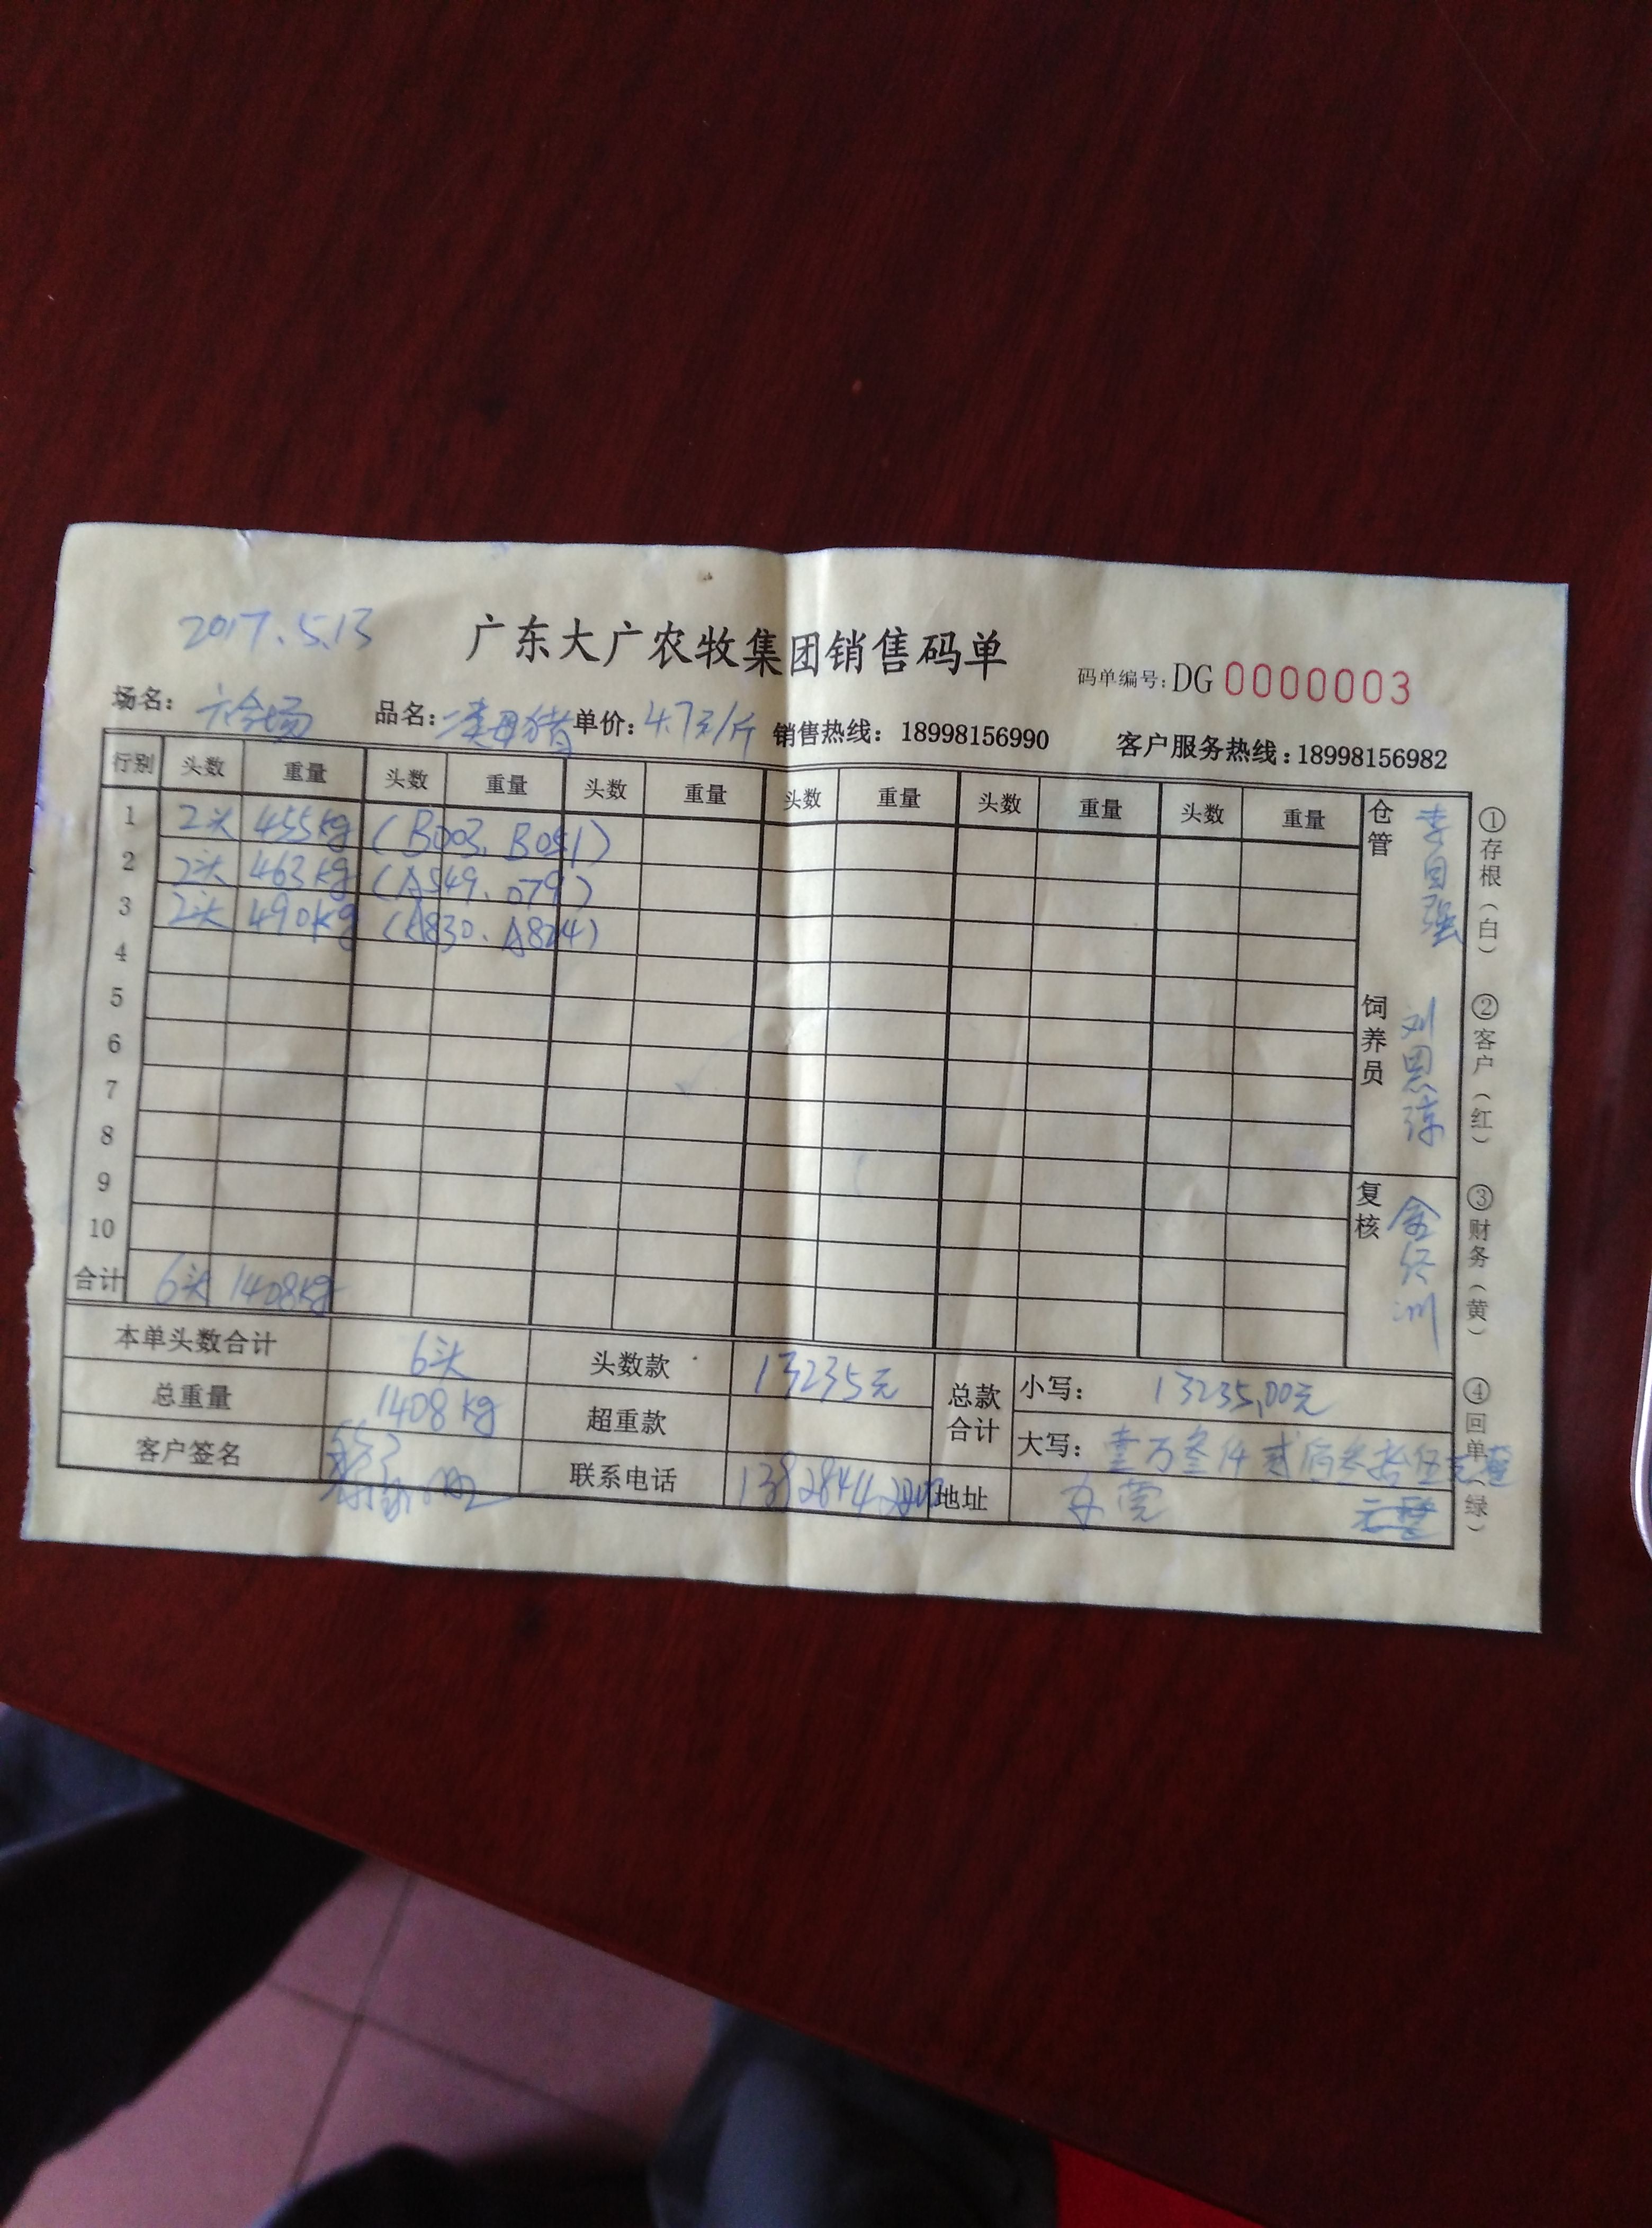 2017.5.13
广东大广农牧集团销售码单
码单编号:DG 0000003
场名: 六合场 品名: 二类母猪 单价: 4.7元/斤 销售热线: 18998156990 客户服务热线:18998156982
行别 头数 重量 头数 重量 头数 重量 头数 重量 头数 重量 头数 重量
1 2头 455kg (B003、B051)
2 2头 463kg (A549、079)
3 2头 490kg (A830、A824)
4
5
6
7
8
9
10
合计 6头 1408kg
仓管 李自强
饲养员 刘恩
复核
本单头数合计 6头 头数款 13235元 总款合计 小写: 13235.00元
总重量 1408kg 超重款 大写: 壹万叁仟贰佰叁拾伍元整
客户签名 联系电话 地址 东莞 元整
①存根(白)
②客户(红)
③财务(黄)
④回单(绿)